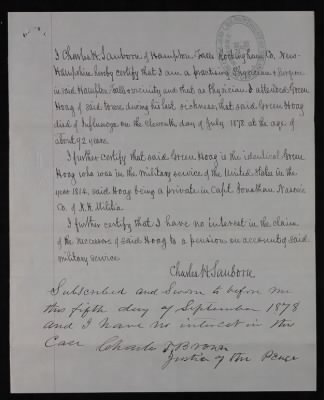 I Charles H. Sanborn of Hampton Falls Rockingham Co. New-
Hampshire hereby certify that I am a practising Physician & Surgeon
in said Hampton Falls & vicinity and that as Physician I attended Green
Hoag of said town during his last sickness, that said Green Hoag
died of Influenza on the eleventh day of July 1878 at the age of
about 92 years.
I further certify that said Green Hoag is the identical Green
Hoag who was in the Military service of the United States in the
year 1814, said Hoag being a private in Capt. Jonathan
Co. of N.H. Militia.
I further certify that I have no interest in the claim
of the of said Hoag to a pension on account of said
military service
Charles H Sanborn
Subscribed and Sworn to before me
this fifth day of September 1878
and I have no interest in this
Case Charles T Brown
Justice of the Peace